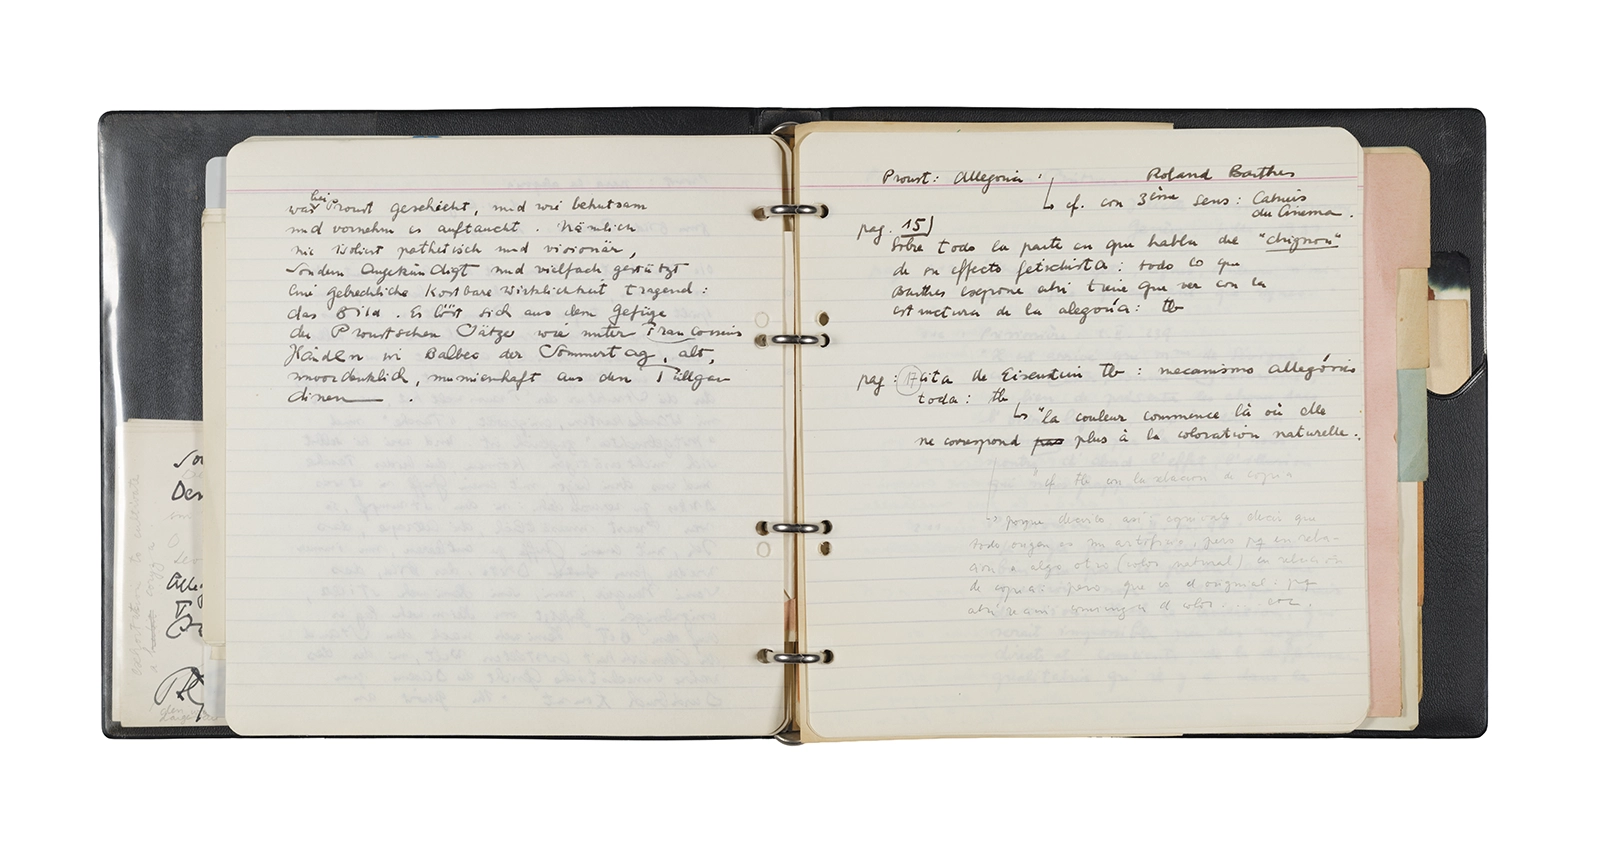 bei
was Proust geschieht, und wie behutsam
und vornehm es auftaucht. Nämlich
nie isoliert pathetisch und visionär,
sondern angekündigt und vielfach gestützt
eine gebrechliche kostbare Wirklichkeit tragend:
das Bild. Es löst sich aus dem Gefüge
der Proustschen Sätze wie unter Françoisens
Händen in Balbec der Sommertag, alt,
unvordenklich, mumienhaft aus den Tüllgar
dinen.
Proust: Allegoria: Roland Barthes
cf. con 3ième sens: Cahiers
du Cinema.
pag. 15)
Sobre todo la parte en que habla de "chignon"
de su effecto fetischista: todo lo que
Barthes expone ahi tiene que ver con la
estructura de la alegoría: tb
pag: 17 cita de Eisenstein tb: mecanismo allegórico
toda: tb
"la couleur commence là où elle
ne correspond pas plus à la coloration naturelle.
cf. tb con la relacion de copia
→ porque decirlo así equivale decir que
todo origen es un artificio, pero pq en rela-
cion a algo otro (color natural) en relación
de copia: pero que es el original: pq
ahi comienza el color...
Der
exhortation to cultivate